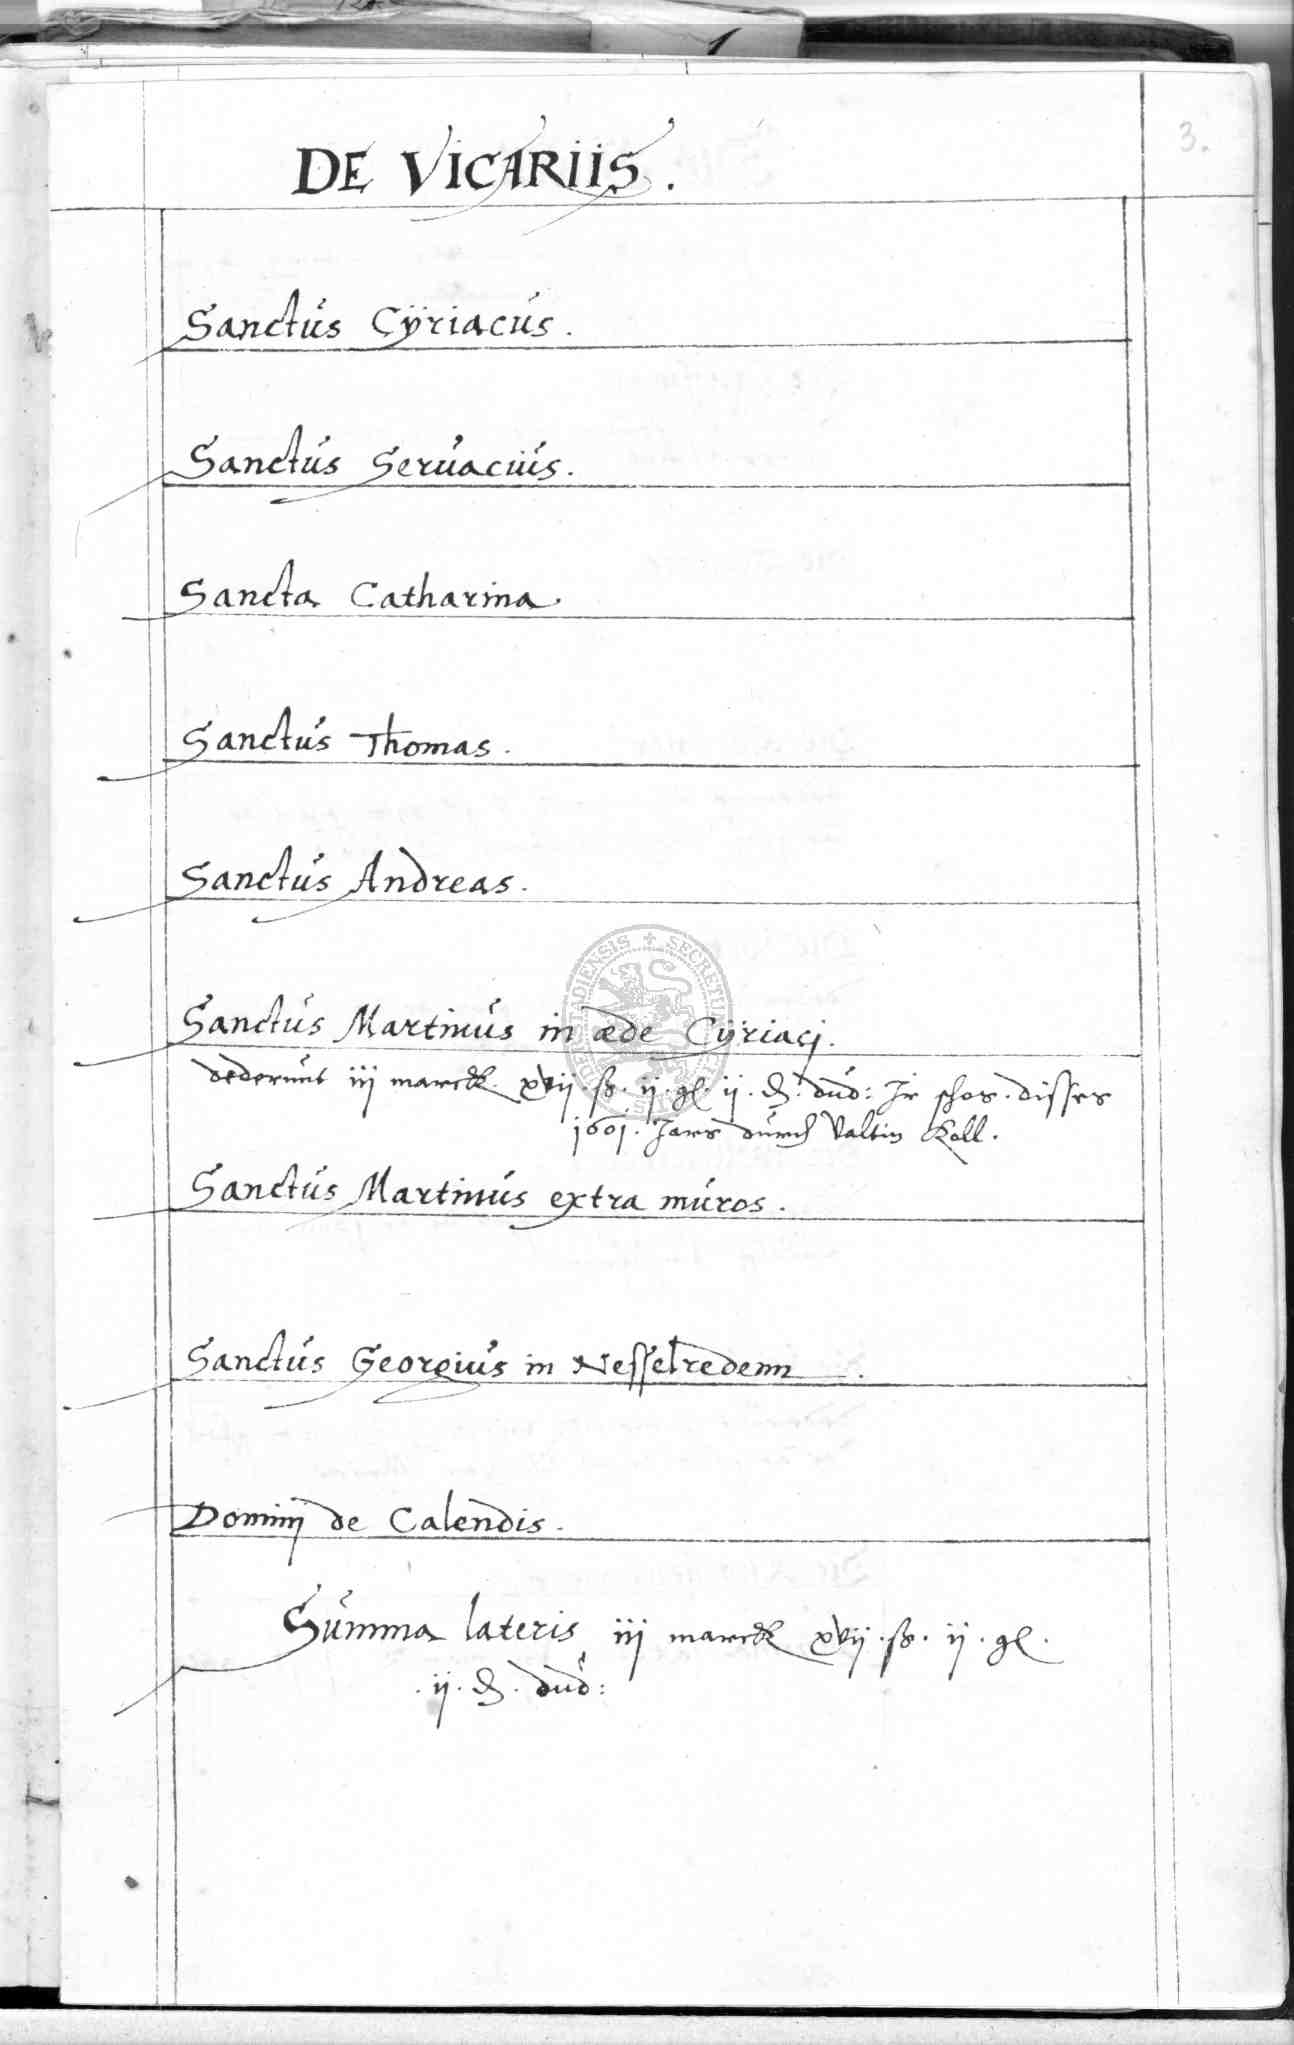 3.
DE VICARIIS.
Sanctus Cÿriacus.
Sanctus Seruacius.
Sancta Catharina.
Sanctus Thomas.
Sanctus Andreas.
Sanctus Martinus in æde Cÿriacj.
dederunt iij marck. xvij. ß. ij. gl. ij. ₰. dud: Ir schos. disses
1601. Jars durch Valtin Koll.
Sanctus Martinus extra muros.
Sanctus Georgius in Nesselredenn.
Dominj de Calendis.
Summa lateris iij marck xvij. ß. ij. gl.
. ij. ₰. dud: